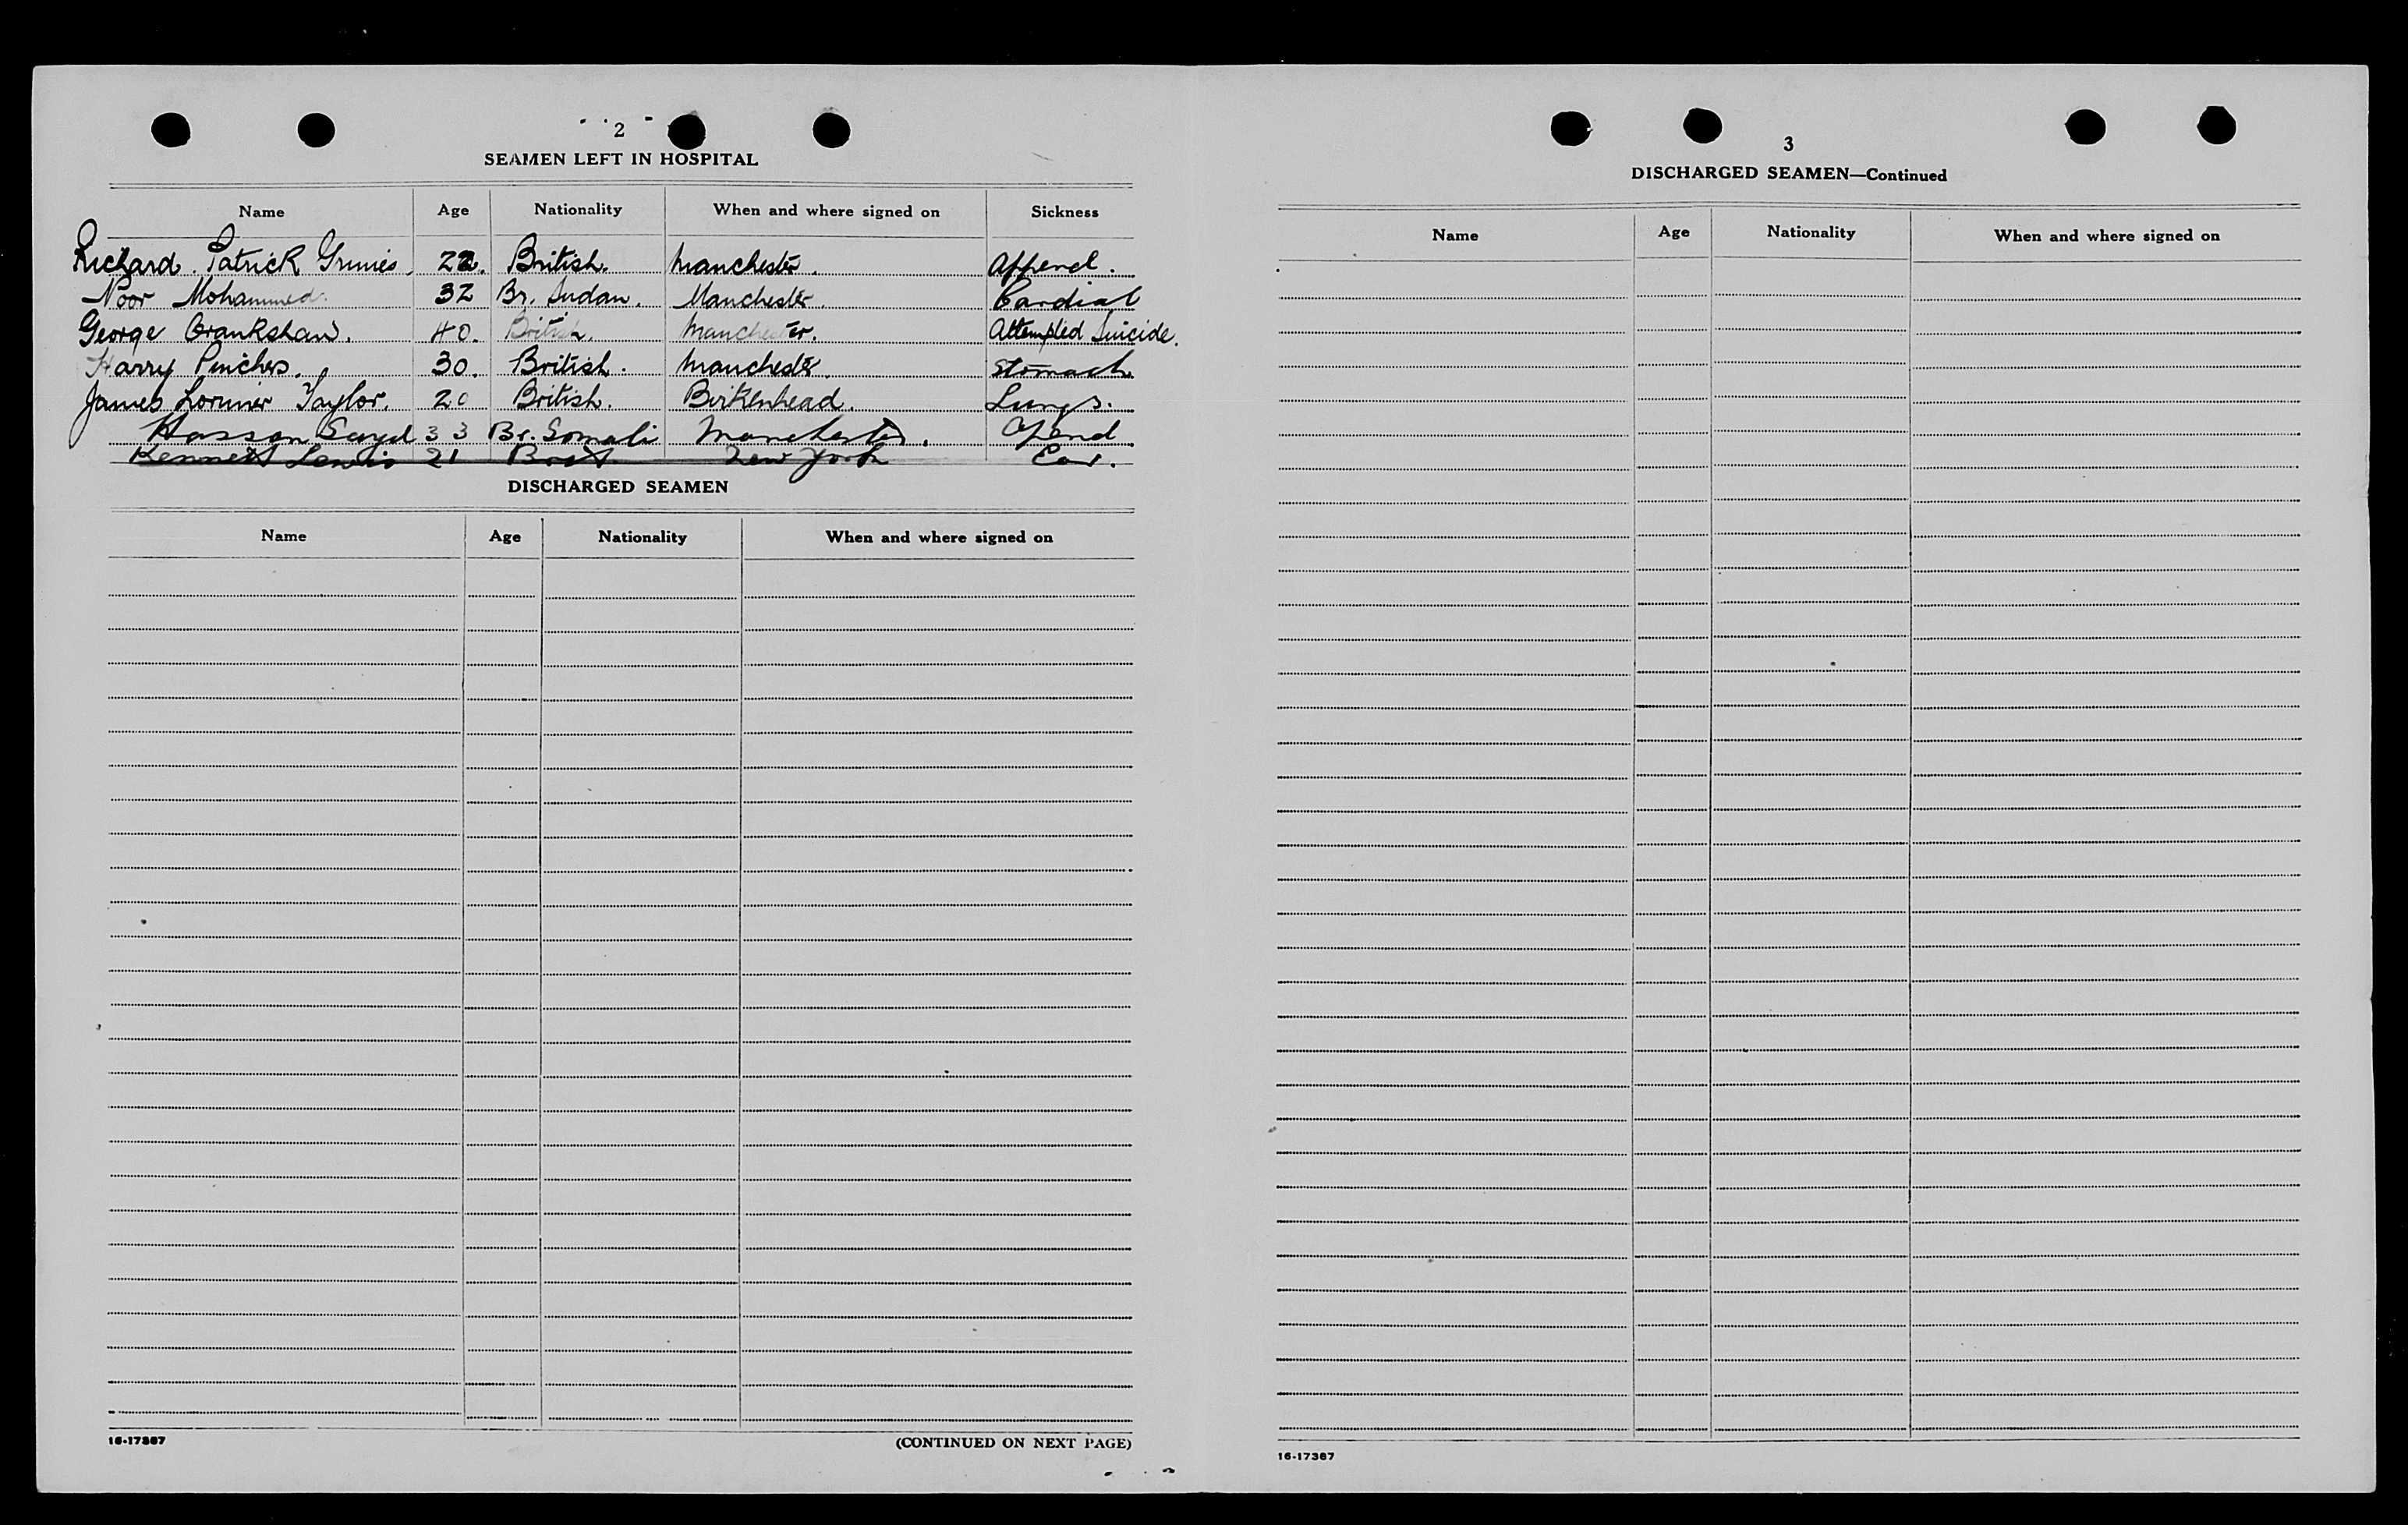 2
SEAMEN LEFT IN HOSPITAL
Name Age Nationality When and where signed on Sickness
Richard Patrick Grimes. 22. British. Manchester. Append.
Noor Mohammed. 32 Br. Sudan. Manchester. Cardial
George Crankshaw. 40. British. Manchester. Attempted Suicide.
Harry Pinches. 30. British. Manchester. Stomach
James Lorimer Taylor. 20 British. Birkenhead. Lungs.
Hassan Sayd 33 Br. Somali Manchester. Apend
Kenneth Lewis 21 Brit New York Ear.
DISCHARGED SEAMEN
Name Age Nationality When and where signed on
16-17367
(CONTINUED ON NEXT PAGE)
3
DISCHARGED SEAMEN—Continued
Name Age Nationality When and where signed on
16-17367